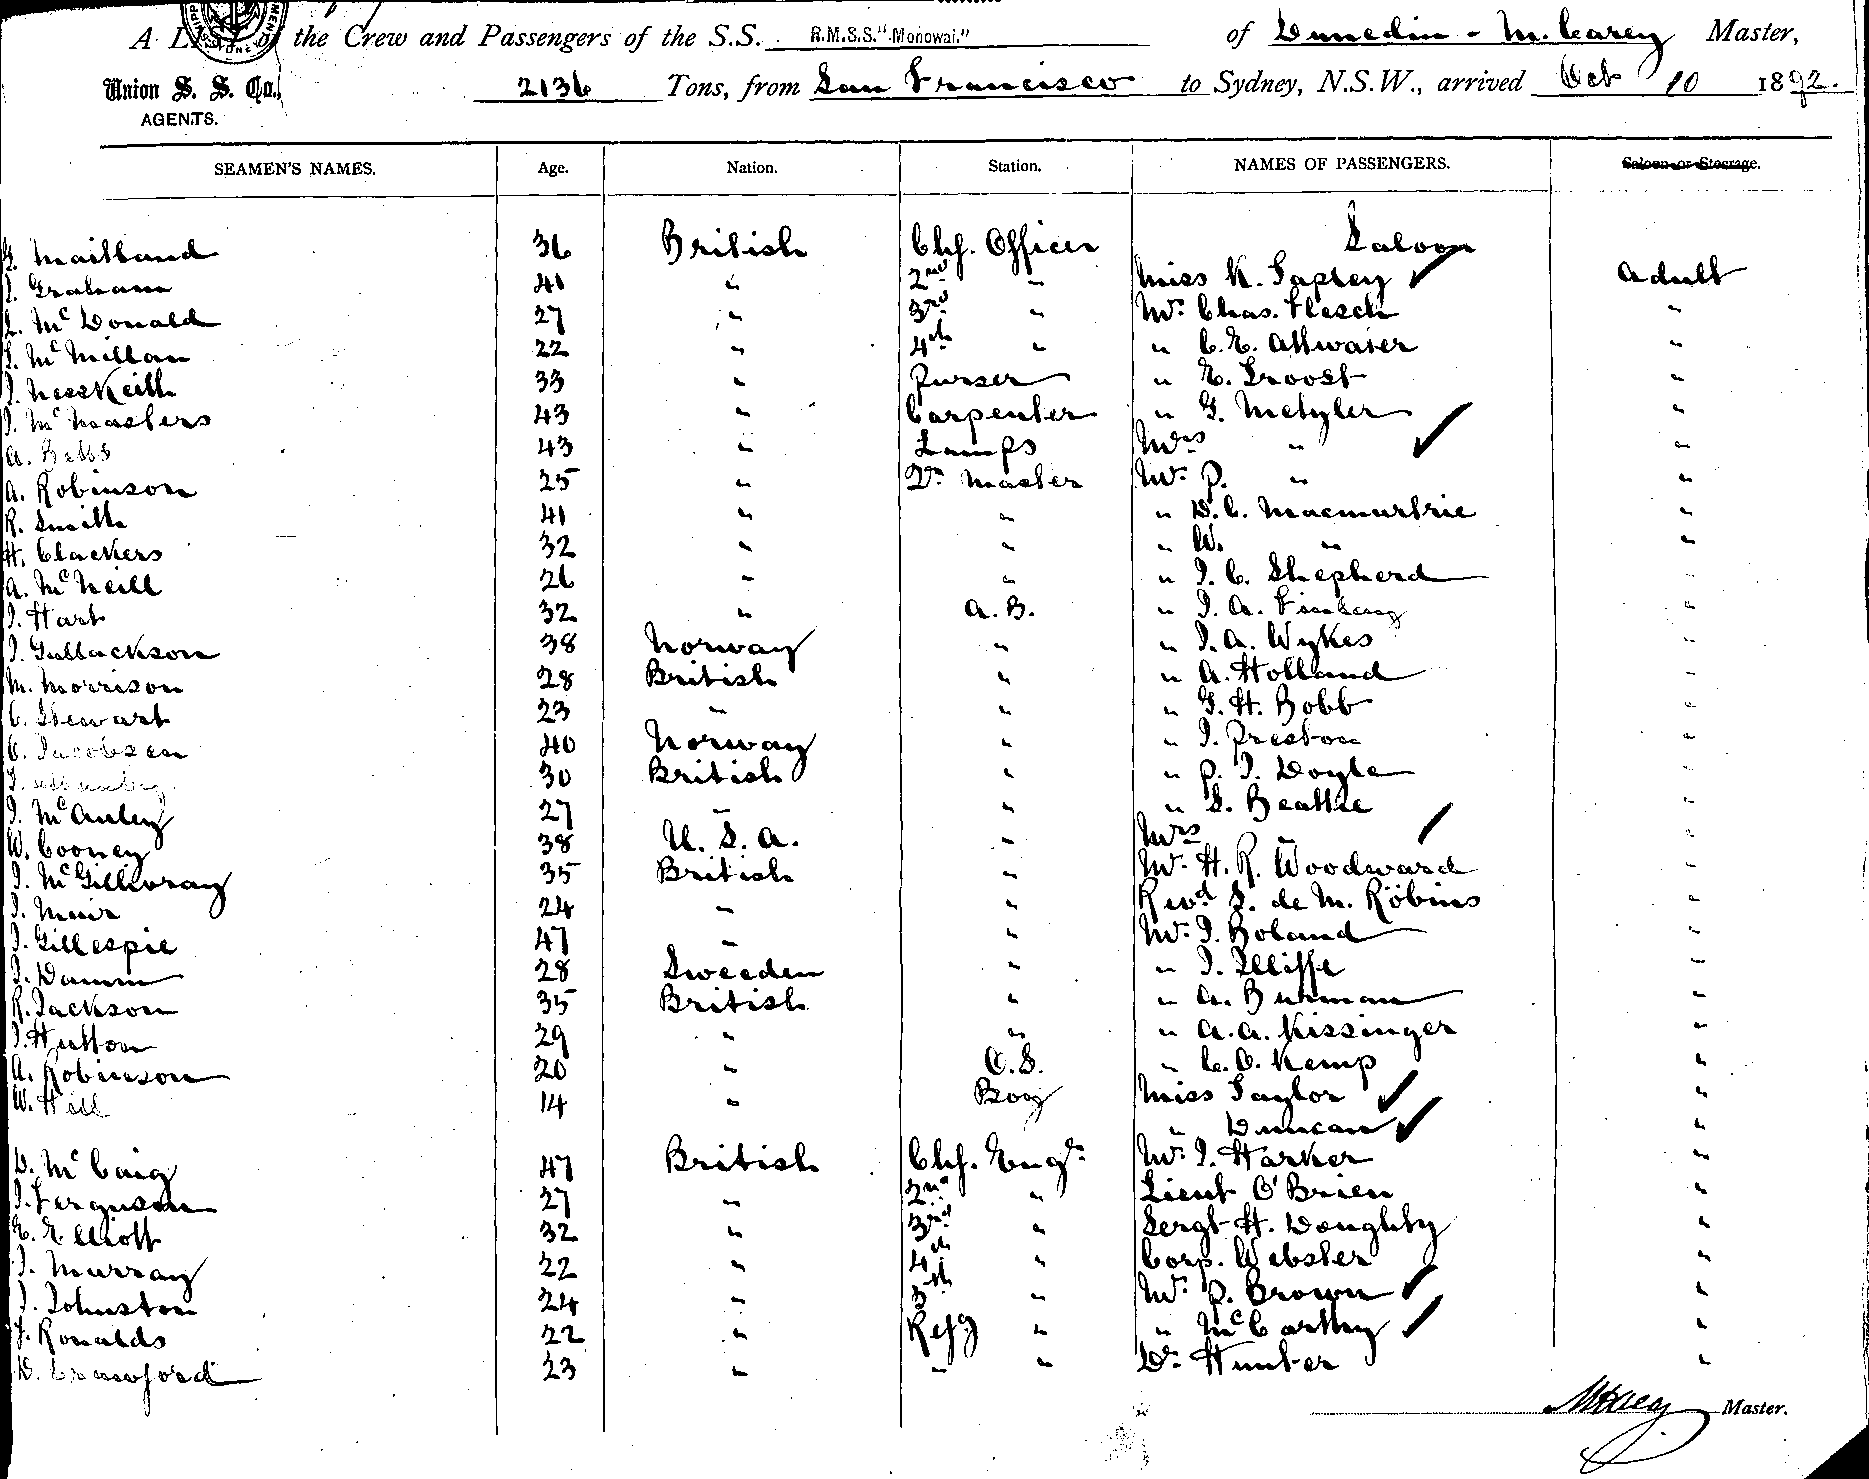 A List of the Crew and Passengers of the S.S. R.M.S.S. "Monowai." of Dunedin - M. Carey Master,
Union S. S. Co., 2136 Tons, from San Francisco to Sydney, N.S.W., arrived Oct 10 1892.
AGENTS.
SEAMEN'S NAMES. Age. Nation. Station. NAMES OF PASSENGERS. Saloon or Steerage.
Saloon
Maitland 36 British Chf. Officer
J. Graham 41 " 2nd " Miss K. Tapley Adult
McDonald 27 " 3rd " Mr. Chas. Flesch "
McMillan 22 " 4th " " C. E. Attwater "
J. NessKeith 33 " Purser " E. Troost "
J. McMasters 43 " Carpenter " G. Metzler "
A. Betts 43 " Lamps Mrs " "
A. Robinson 25 " Qr. Master Mr. P. " "
R. Smith 41 " " " D. C. Macmurtrie "
H. Clackers 32 " " " W. " "
A. McNeill 26 " " " J. C. Shepherd
J. Hart 32 " A. B. " J. A. "
J. Gullackson 38 Norway " " J. A. Wykes "
M. Morrison 28 British " " A. Holland "
C. Stewart 23 " " " G. H. Bobb "
C. Jacobsen 40 Norway " " J. Preston "
30 British " " P. J. Doyle "
J. McAuley 27 " " " S. Beattie "
W. Cooney 38 U. S. A. " Mrs " "
J. McGillivray 35 British " Mr. H. R. Woodward "
J. Muir 24 " " Revd S. de M. Robins "
J. Gillespie 47 " " Mr. J. Boland "
J. Damm 28 Sweeden " " J. Illiffe "
R. Jackson 35 British " " A. Burman "
J. Hutton 29 " " " A. A. Kissinger "
A. Robinson 20 " O. S. " C. O. Kemp "
W. Hill 14 " Boy Miss Taylor "
" Duncan "
D. McCaig 47 British Chf. Engr. Mr. J. Harker "
J. Ferguson 27 " 2nd " Lieut O'Brien "
E. Elliott 32 " 3rd " Sergt H. Doughty "
J. Murray 22 " 4th " Corp. Webster "
J. Johnston 24 " 5th " Mr. P. Brown "
J. Ronalds 22 " Refg " " McCarthy "
D. Crawford 23 " " " Dr. Hunter "
MCarey Master.